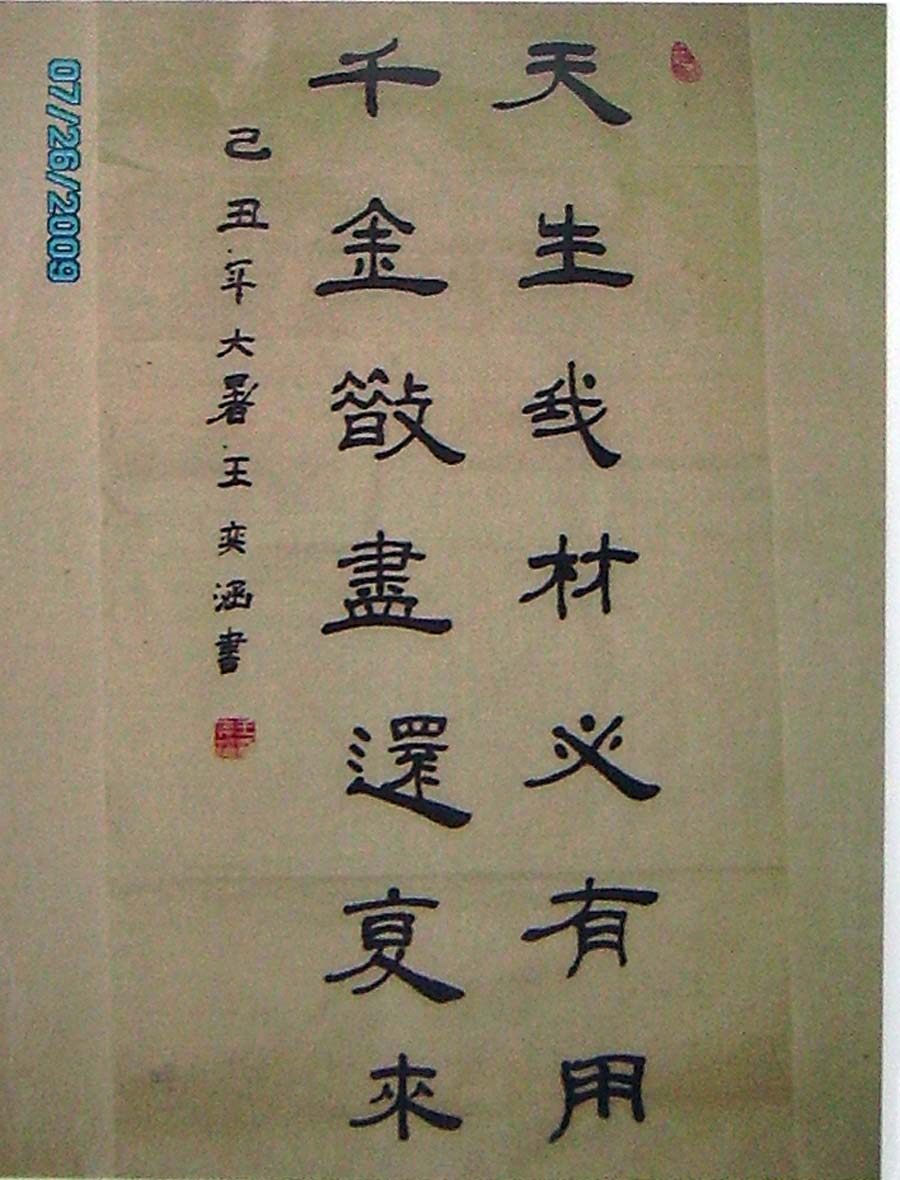 天生我材必有用
千金散盡還复來
己丑年大暑王奕涵書
07/26/2009